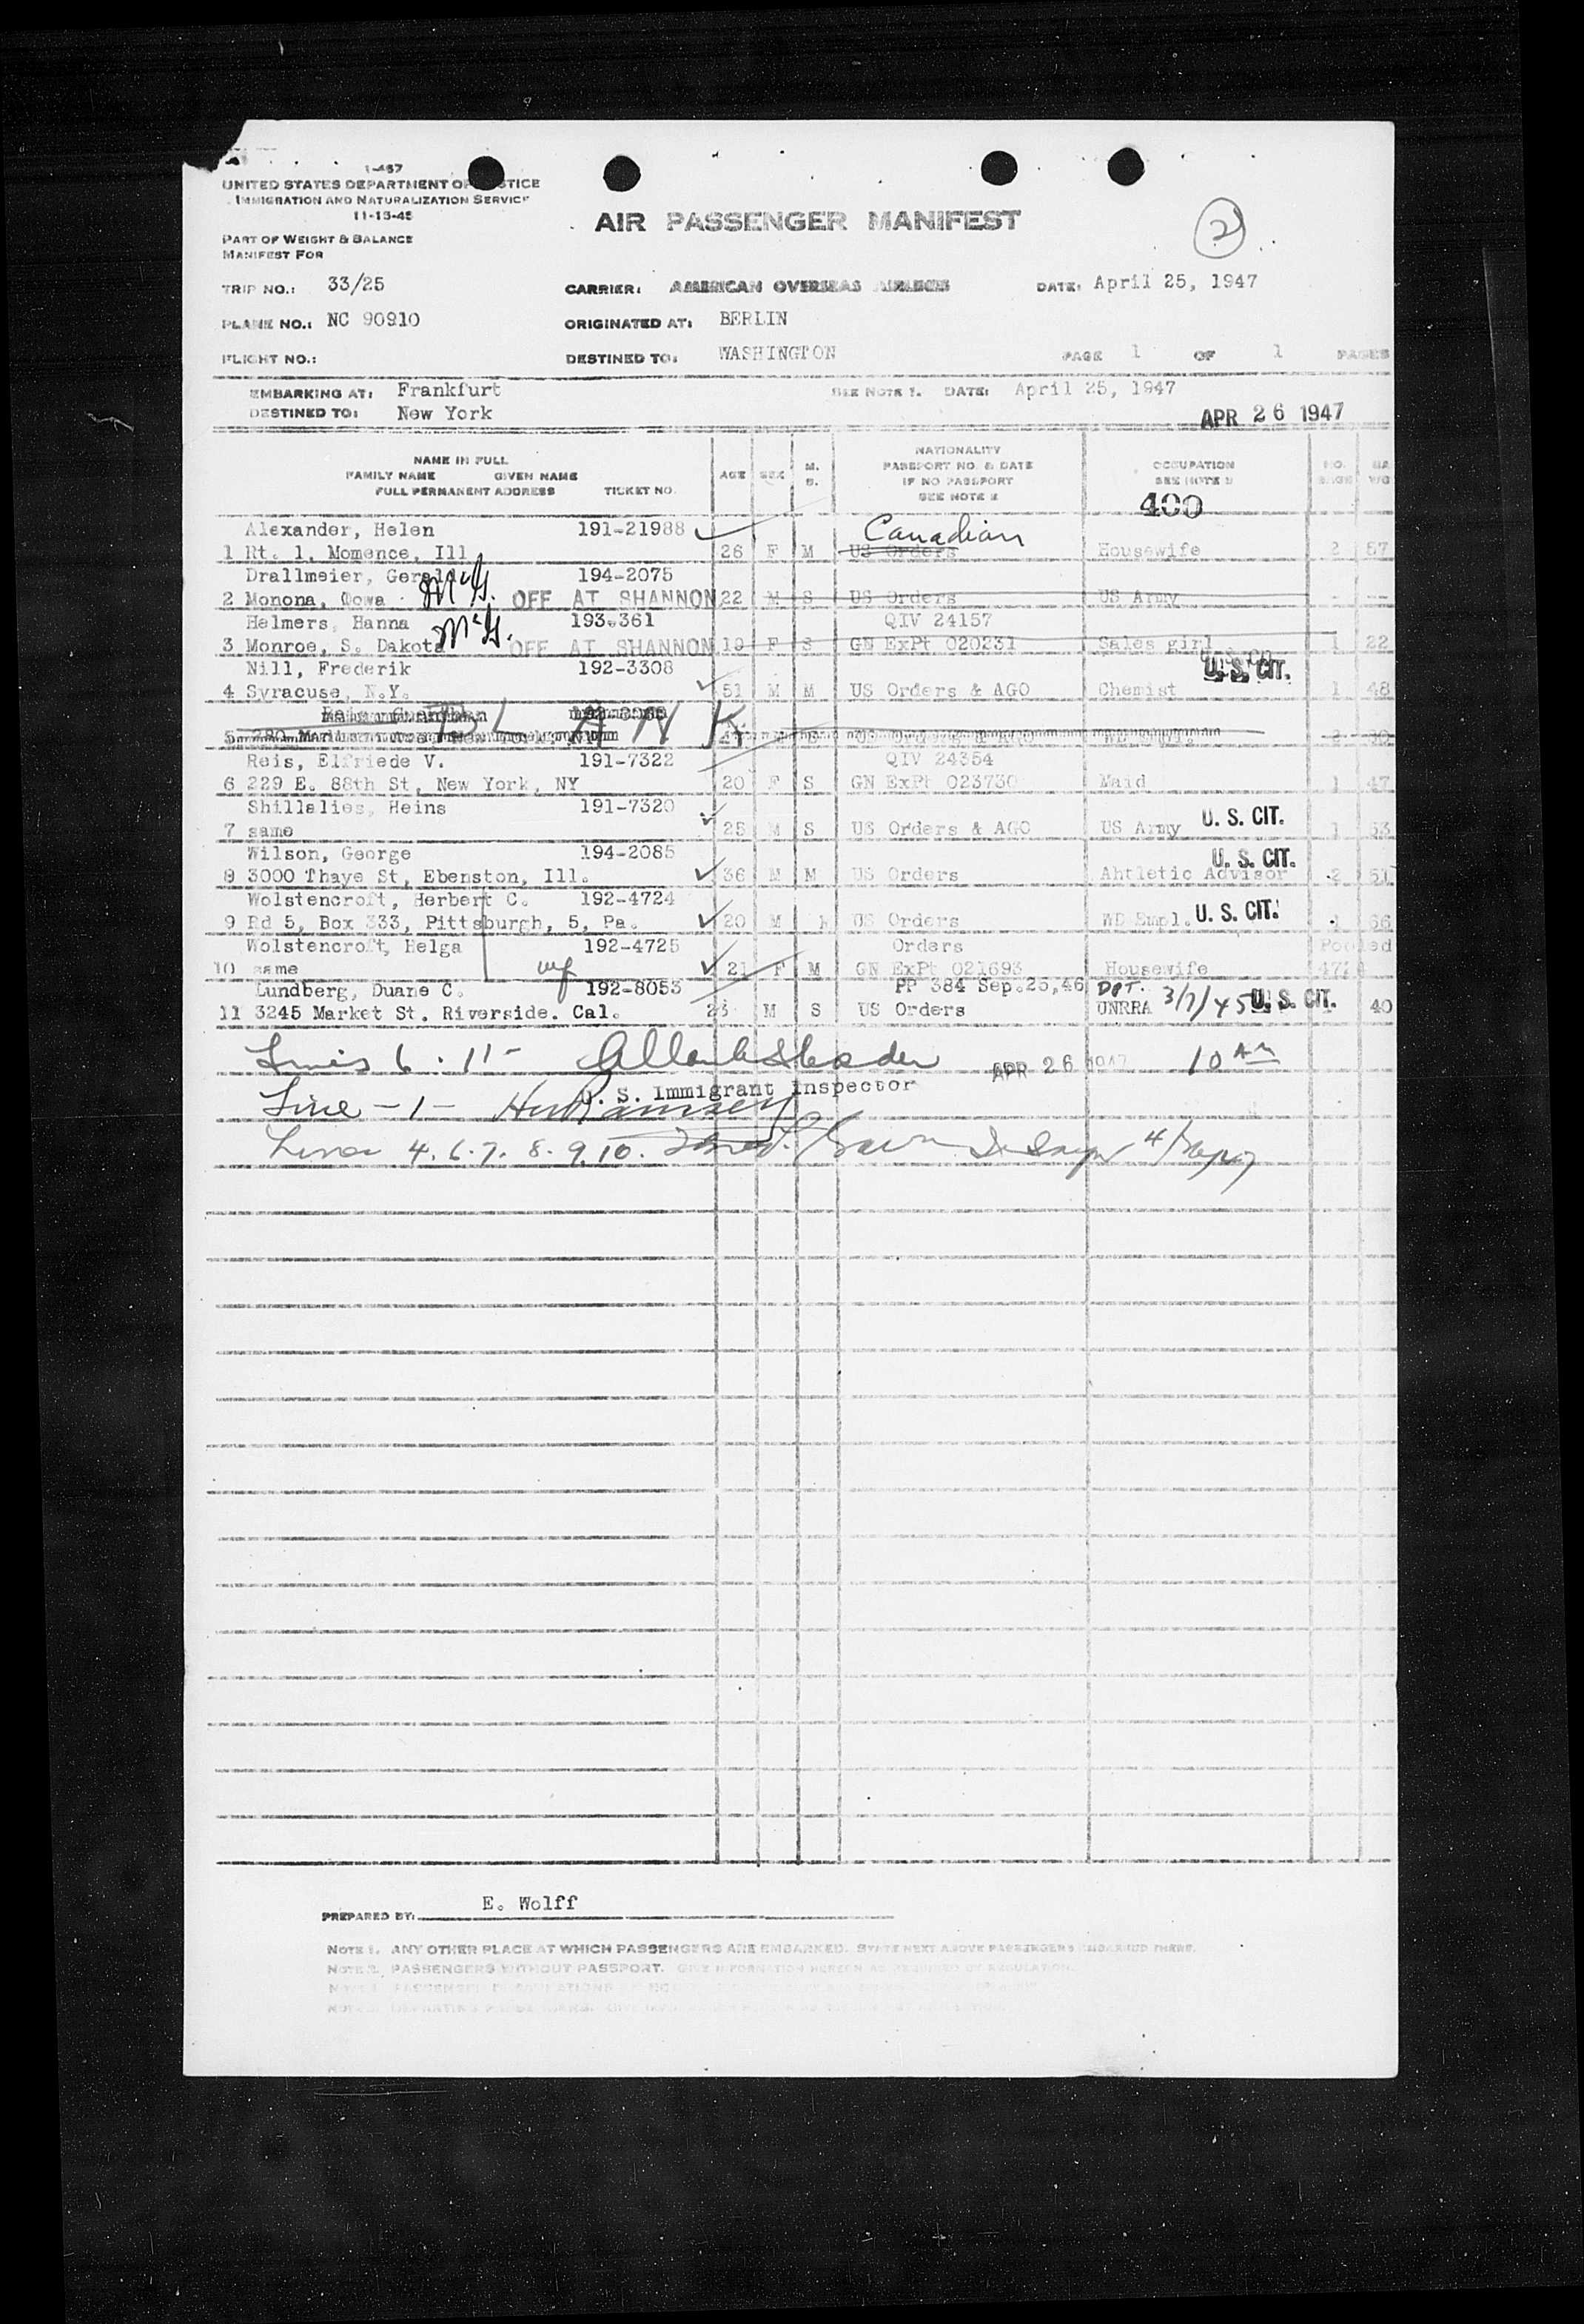 1-467
UNITED STATES DEPARTMENT OF JUSTICE
IMMIGRATION AND NATURALIZATION SERVICE
11-13-45
AIR PASSENGER MANIFEST
2
PART OF WEIGHT & BALANCE
MANIFEST FOR
TRIP NO.: 33/25 CARRIER: AMERICAN OVERSEAS AIRLINES DATE: April 25, 1947
PLANE NO.: NC 90910 ORIGINATED AT: BERLIN
FLIGHT NO.: DESTINED TO: WASHINGTON PAGE 1 OF 1 PAGES
EMBARKING AT: Frankfurt SEE NOTE 1. DATE: April 25, 1947
DESTINED TO: New York APR 26 1947
NAME IN FULL
FAMILY NAME GIVEN NAME
FULL PERMANENT ADDRESS TICKET NO. AGE SEX M. S. NATIONALITY
PASSPORT NO. & DATE
IF NO PASSPORT
SEE NOTE 2 OCCUPATION
SEE NOTE 3 NO.
400
Alexander, Helen 191-21988 Canadian
1 Rt. 1, Momence, Ill 26 F M US Orders Housewife 2 57
Drallmeier, Gerald 194-2075
2 Monona, Oowa McG. OFF AT SHANNON 22 M S US Orders US Army
Helmers, Hanna 193.361 QIV 24157
3 Monroe, S. Dakota McG. OFF AT SHANNON 19 F S GN ExPt 020231 Sales girl 1 22
Nill, Frederik 192-3308 U.S. CIT.
4 Syracuse, N.Y. 51 M M US Orders & AGO Chemist 1 48
BLANK
5
Reis, Elfriede V. 191-7322 QIV 24354
6 229 E. 88th St, New York, NY 20 F S GN ExPt 023730 Maid 1 47
Shillalies, Heins 191-7320
7 same 25 M S US Orders & AGO US Army U. S. CIT. 1 53
Wilson, George 194-2085 U. S. CIT.
8 3000 Thaye St, Ebenston, Ill. 36 M M US Orders Ahtletic Advisor 2 51
Wolstencroft, Herbert C. 192-4724
9 Rd 5, Box 333, Pittsburgh, 5, Pa. 20 M M US Orders WD Empl. U. S. CIT. 66
Wolstencroft, Helga 192-4725 Orders Pooled
10 same 21 F M GN ExPt 021693 Housewife
Lundberg, Duane C. 192-8053 PP 384 Sep.25,46 DPT.
11 3245 Market St. Riverside. Cal. 23 M S US Orders UNRRA 3/7/45 U. S. CIT. 40
APR 26 1947 10 AM
U. S. Immigrant Inspector
Line -1-
Lines 4. 6. 7. 8. 9. 10.
E. Wolff
PREPARED BY:
NOTE 1. ANY OTHER PLACE AT WHICH PASSENGERS ARE EMBARKED. STATE NEXT ABOVE PASSENGERS EMBARKED THERE.
NOTE 2. PASSENGERS WITHOUT PASSPORT. GIVE INFORMATION HEREON AS REQUIRED BY REGULATION.